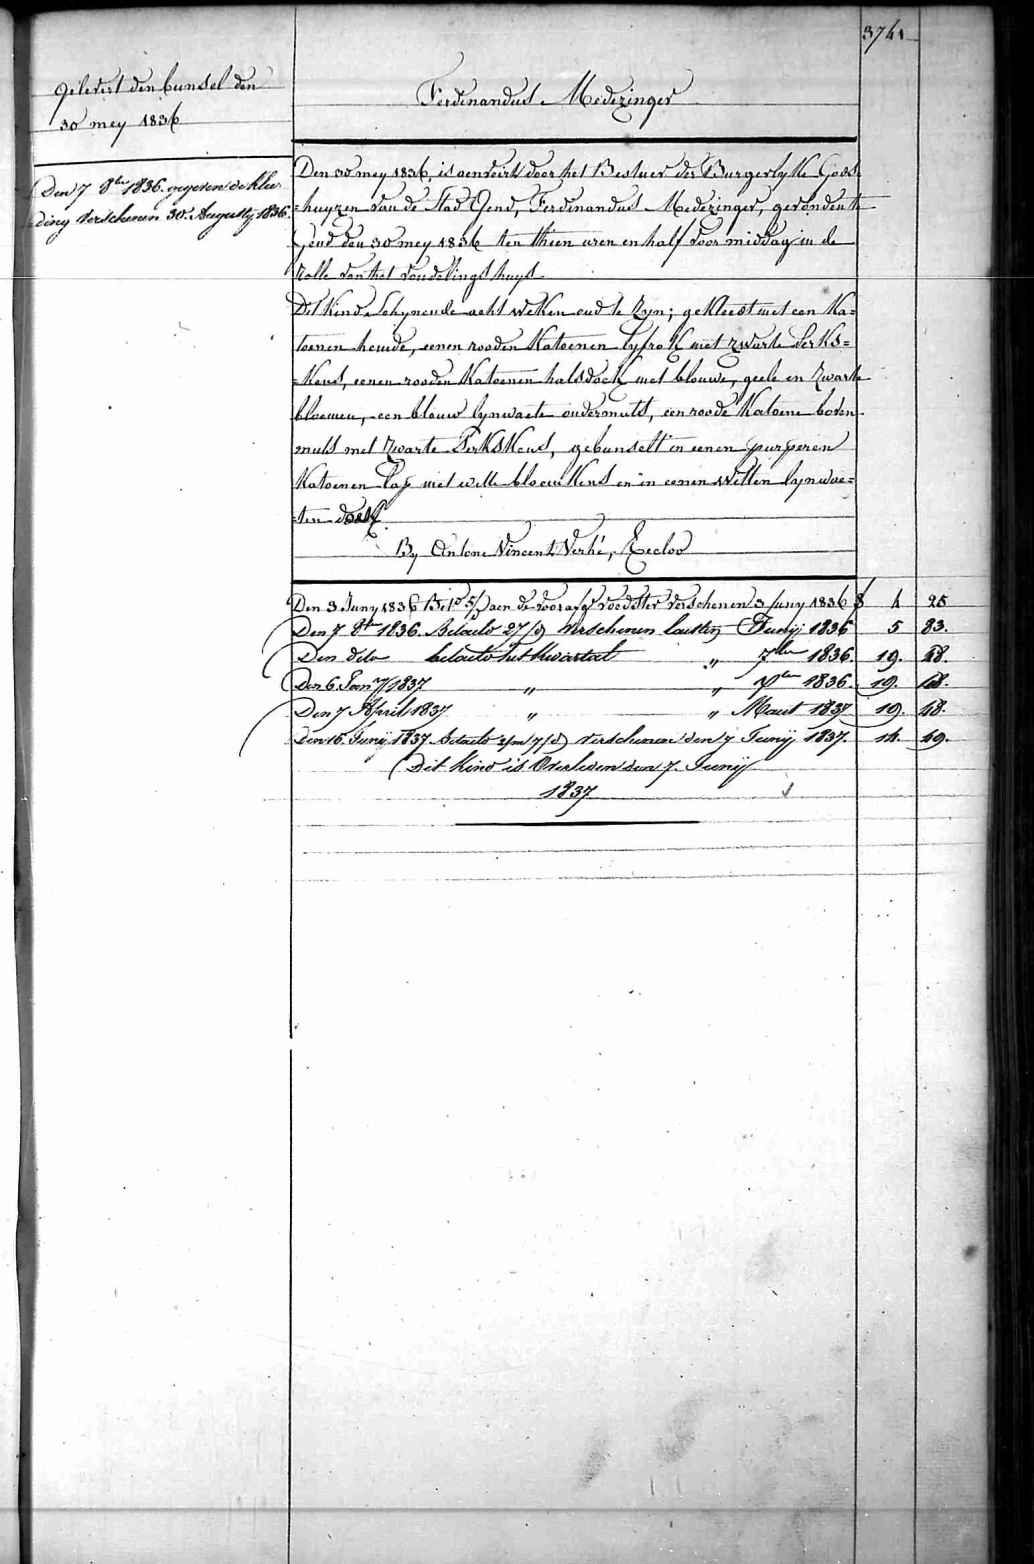 3741
gelevert den bunsel den
30 mey 1836
Den 7 8bre 1836. gegeven de klee-
ding verschenen 30. Augusty 1836.
Ferdinandus Medezinger
Den 30 mey 1836, is aenveirt door het Bestuer der Burgerlyke Gods
=huyzen van de Stad Gend, Ferdinandus Medezinger, gevonden te
Gend den 30 mey 1836 ten thien uren en half voor middag in de
rolle van het vondelings huys
Dit Kind schynende acht weken oud te zyn; gekleed met een Ka=
toenen hemde, eenen rooden Katoenen lyfrok met zwarte Perks=
=Kens, eenen rooden Katoenen halsdoek met blouwe, geele en zwarte
bloemen, een blouw lynwaete ondermuts, een roode Katoene boven
muts met zwarte PerksKens, gebunselt in eenen purperen
Katoenen lap met witte bloemkens en in eenen witten lynwae=
=ten doek.
By Antone Vincent Verhé, Eecloo
Den 3 Juny 1836 Bet. 5/ aen de voorafg. voedster verschenen 3 Juny 1836 f 4 25
Den 7 8bre 1836. Betaeld 27/d verschenen lausten Junij 1836 5 83.
Den dito betaeld het kwartael " 7bre 1836. 19. 18.
Den 6. Jany 1837 " " Xbre 1836. 19. 18.
Den 7 April 1837 " " Maert 1837 19. 18.
Den 16. Junij 1837 Betaeld 2/m 7/d verschenen den 7 Junij 1837. 14. 19.
Dit kind is Overleden den 7. Junij
1837